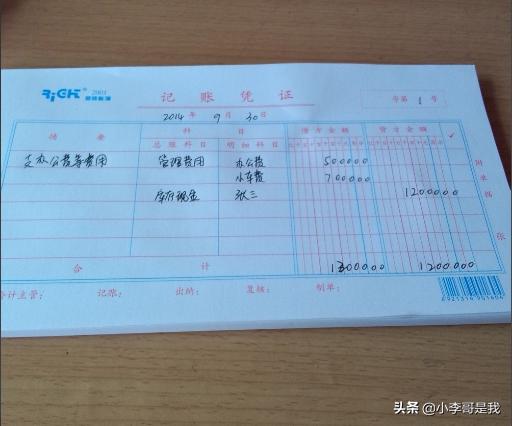 RiGHT® 2001
记 账 凭 证
字第 1 号
2014 年 9 月 30 日
摘 要 科 目 借方金额 贷方金额 ✓
总账科目 明细科目
支办公费等费用 管理费用 办公费 500000
小车费 700000
库存现金 张三 1200000
附单据 张
合 计 1300000 1200000
会计主管: 记账: 出纳: 复核: 制单:
头条 @小李哥是我